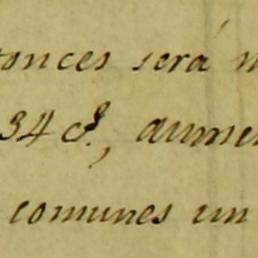 tonces será m
34 cs., aumen
comunes un